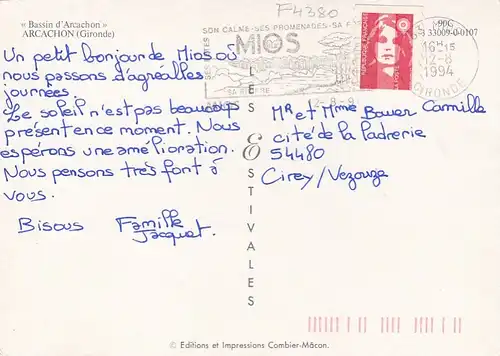 « Bassin d'Arcachon »
ARCACHON (Gironde)
Un petit bonjour de Mios où
nous passons d'agréables
journées.
Le soleil n'est pas beaucoup
présent en ce moment. Nous
espérons une amélioration.
Nous pensons très font à
vous.
Bisous Famille
Jacquet.
F4380
SON CALME-SES PROMENADES-SA
MIOS
12-8-9
REPUBLIQUE FRANÇAISE
LA POSTE
90G
33009-0-0107
16H15
12-8
1994
GIRONDE
LES & ESTIVALES
Mr et Mme Bauer Camille
cité de la Padrerie
54480
Cirey/Vezouze
© Editions et Impressions Combier-Mâcon.